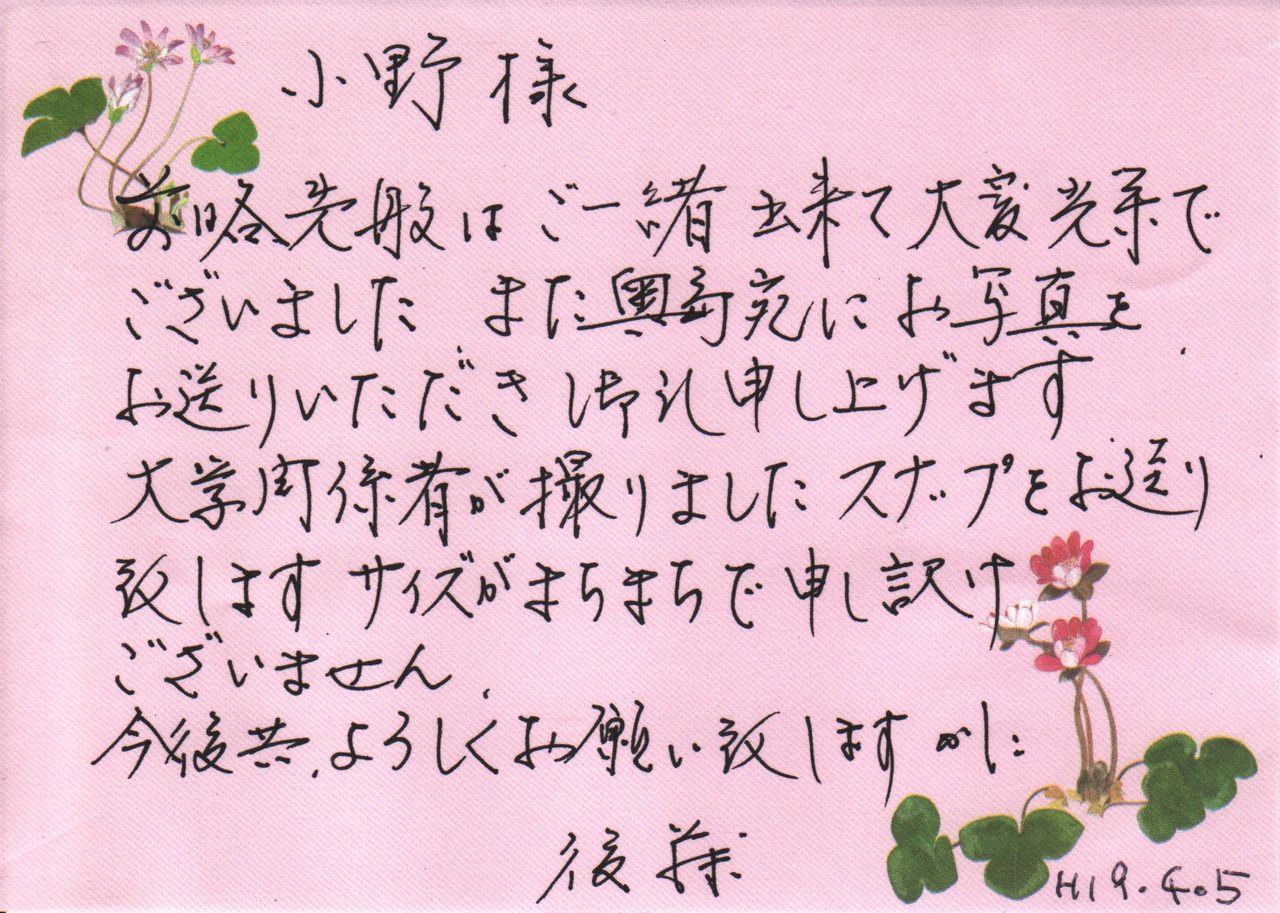 小野様
前略 先般はご一緒出来て大変光栄で
ございました. また奥島宛にお写真を
お送りいただき御礼申し上げます
大学関係者が撮りましたスナップをお送り
致します サイズがまちまちで申し訳け
ございません.
今後共、よろしくお願い致します かしこ
後藤
H19.4.5